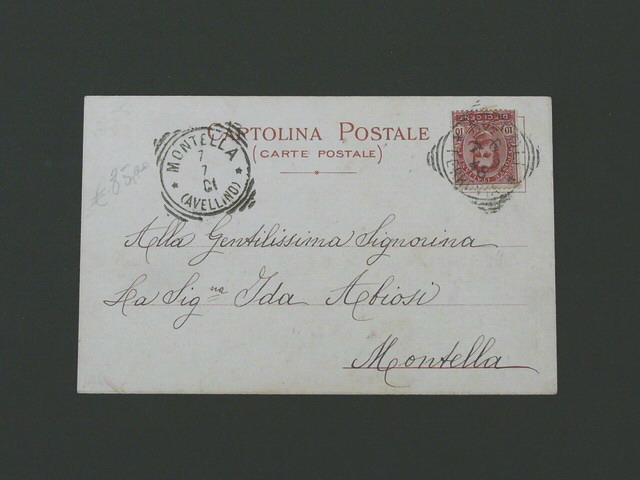 CARTOLINA POSTALE
(CARTE POSTALE)
MONTELLA
7
7
01
(AVELLINO)
10 10
€ 85,00
Alla Gentilissima Signorina
La Sig.na Ida Abiosi
Montella